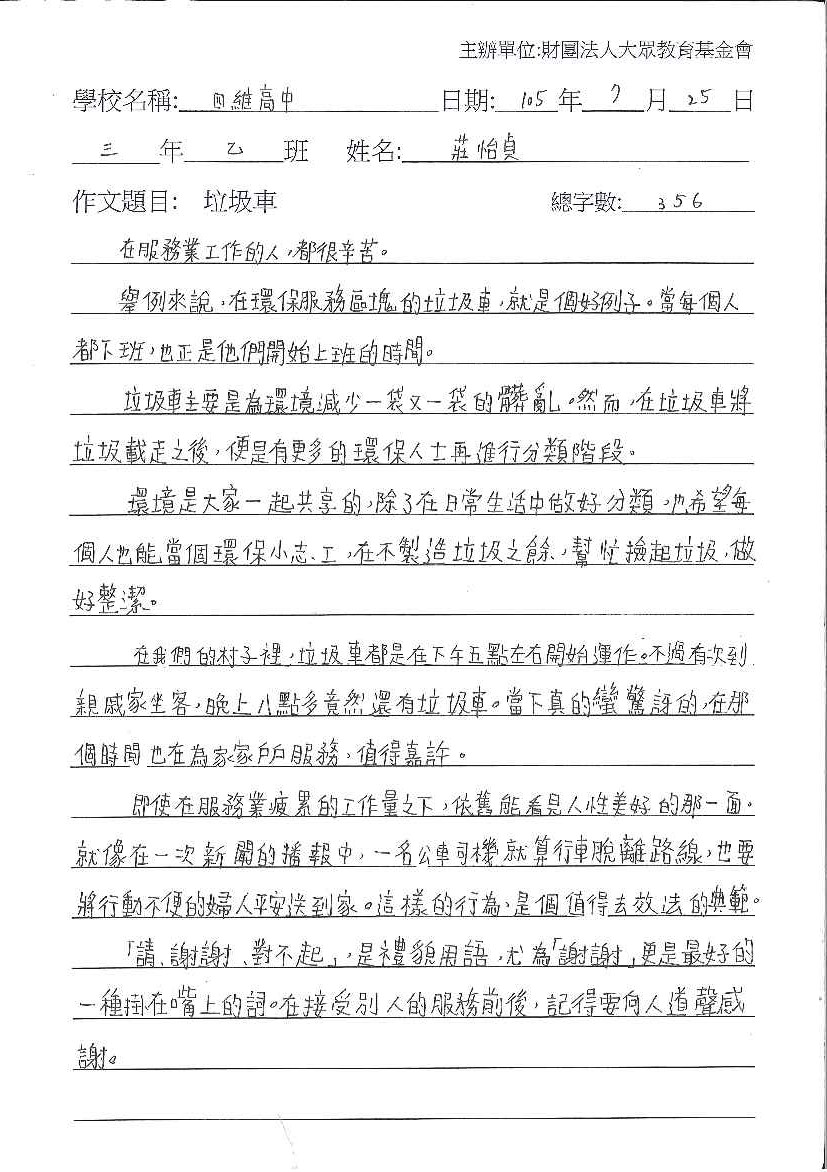 主辦單位:財團法人大眾教育基金會
學校名稱: 四維高中 日期: 105 年 7 月 25 日
三 年 乙 班 姓名: 莊怡貞
作文題目: 垃圾車 總字數: 356
在服務業工作的人,都很辛苦。
舉例來說,在環保服務區塊的垃圾車,就是個好例子。當每個人
都下班,也正是他們開始上班的時間。
垃圾車主要是為環境減少一袋又一袋的髒亂。然而,在垃圾車將
垃圾載走之後,便是有更多的環保人士再進行分類階段。
環境是大家一起共享的,除了在日常生活中做好分類,也希望每
個人也能當個環保小志工,在不製造垃圾之餘,幫忙撿起垃圾,做
好整潔。
在我們的村子裡,垃圾車都是在下午五點左右開始運作。不過有次到
親戚家坐客,晚上八點多竟然還有垃圾車。當下真的蠻驚訝的,在那
個時間也在為家家戶戶服務,值得嘉許。
即使在服務業疲累的工作量之下,依舊能看見人性美好的那一面。
就像在一次新聞的播報中,一名公車司機就算行車脫離路線,也要
將行動不便的婦人平安送到家。這樣的行為,是個值得去效法的典範。
「請、謝謝、對不起」,是禮貌用語,尤為「謝謝」更是最好的
一種掛在嘴上的詞。在接受別人的服務前後,記得要向人道聲感
謝。